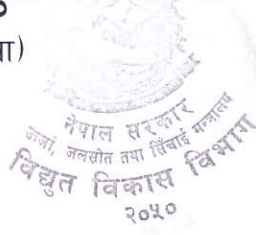 ०
ा)
नेपाल सरकार
ऊर्जा, जलस्रोत तथा सिंचाई मन्त्रालय
विद्युत विकास विभाग
२०५०